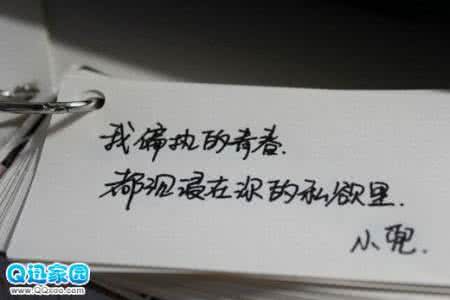 我偏执的青春.
都沉浸在你的私欲里.
小兜.
Q迅家园
www.QQxoo.com